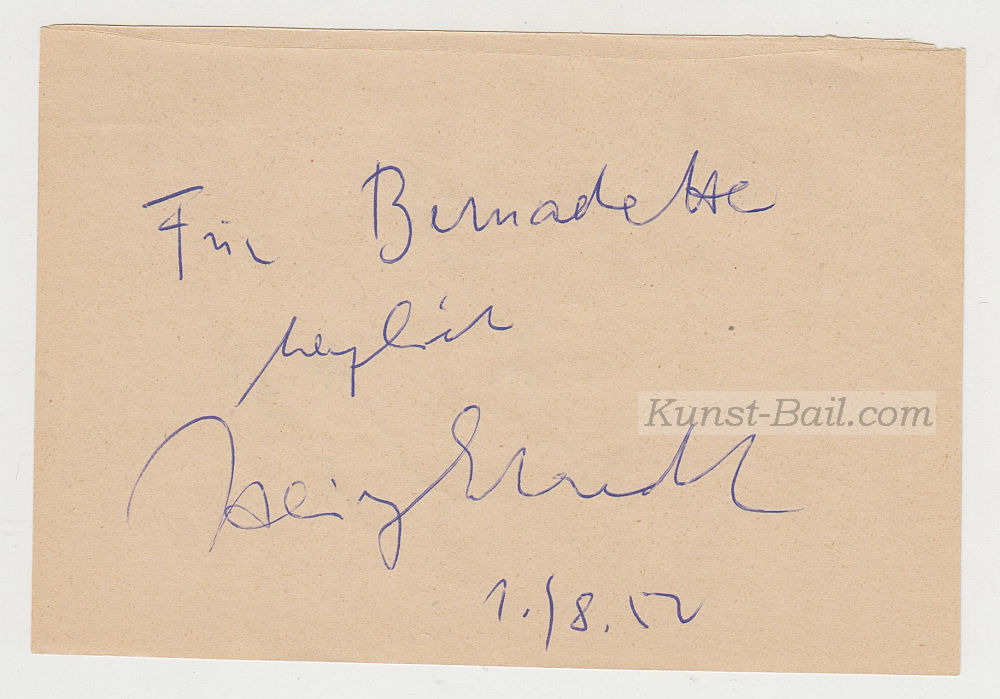 Für Bernadette
herzlich
Kunst-Bail.com
Heinz
1./8. 52